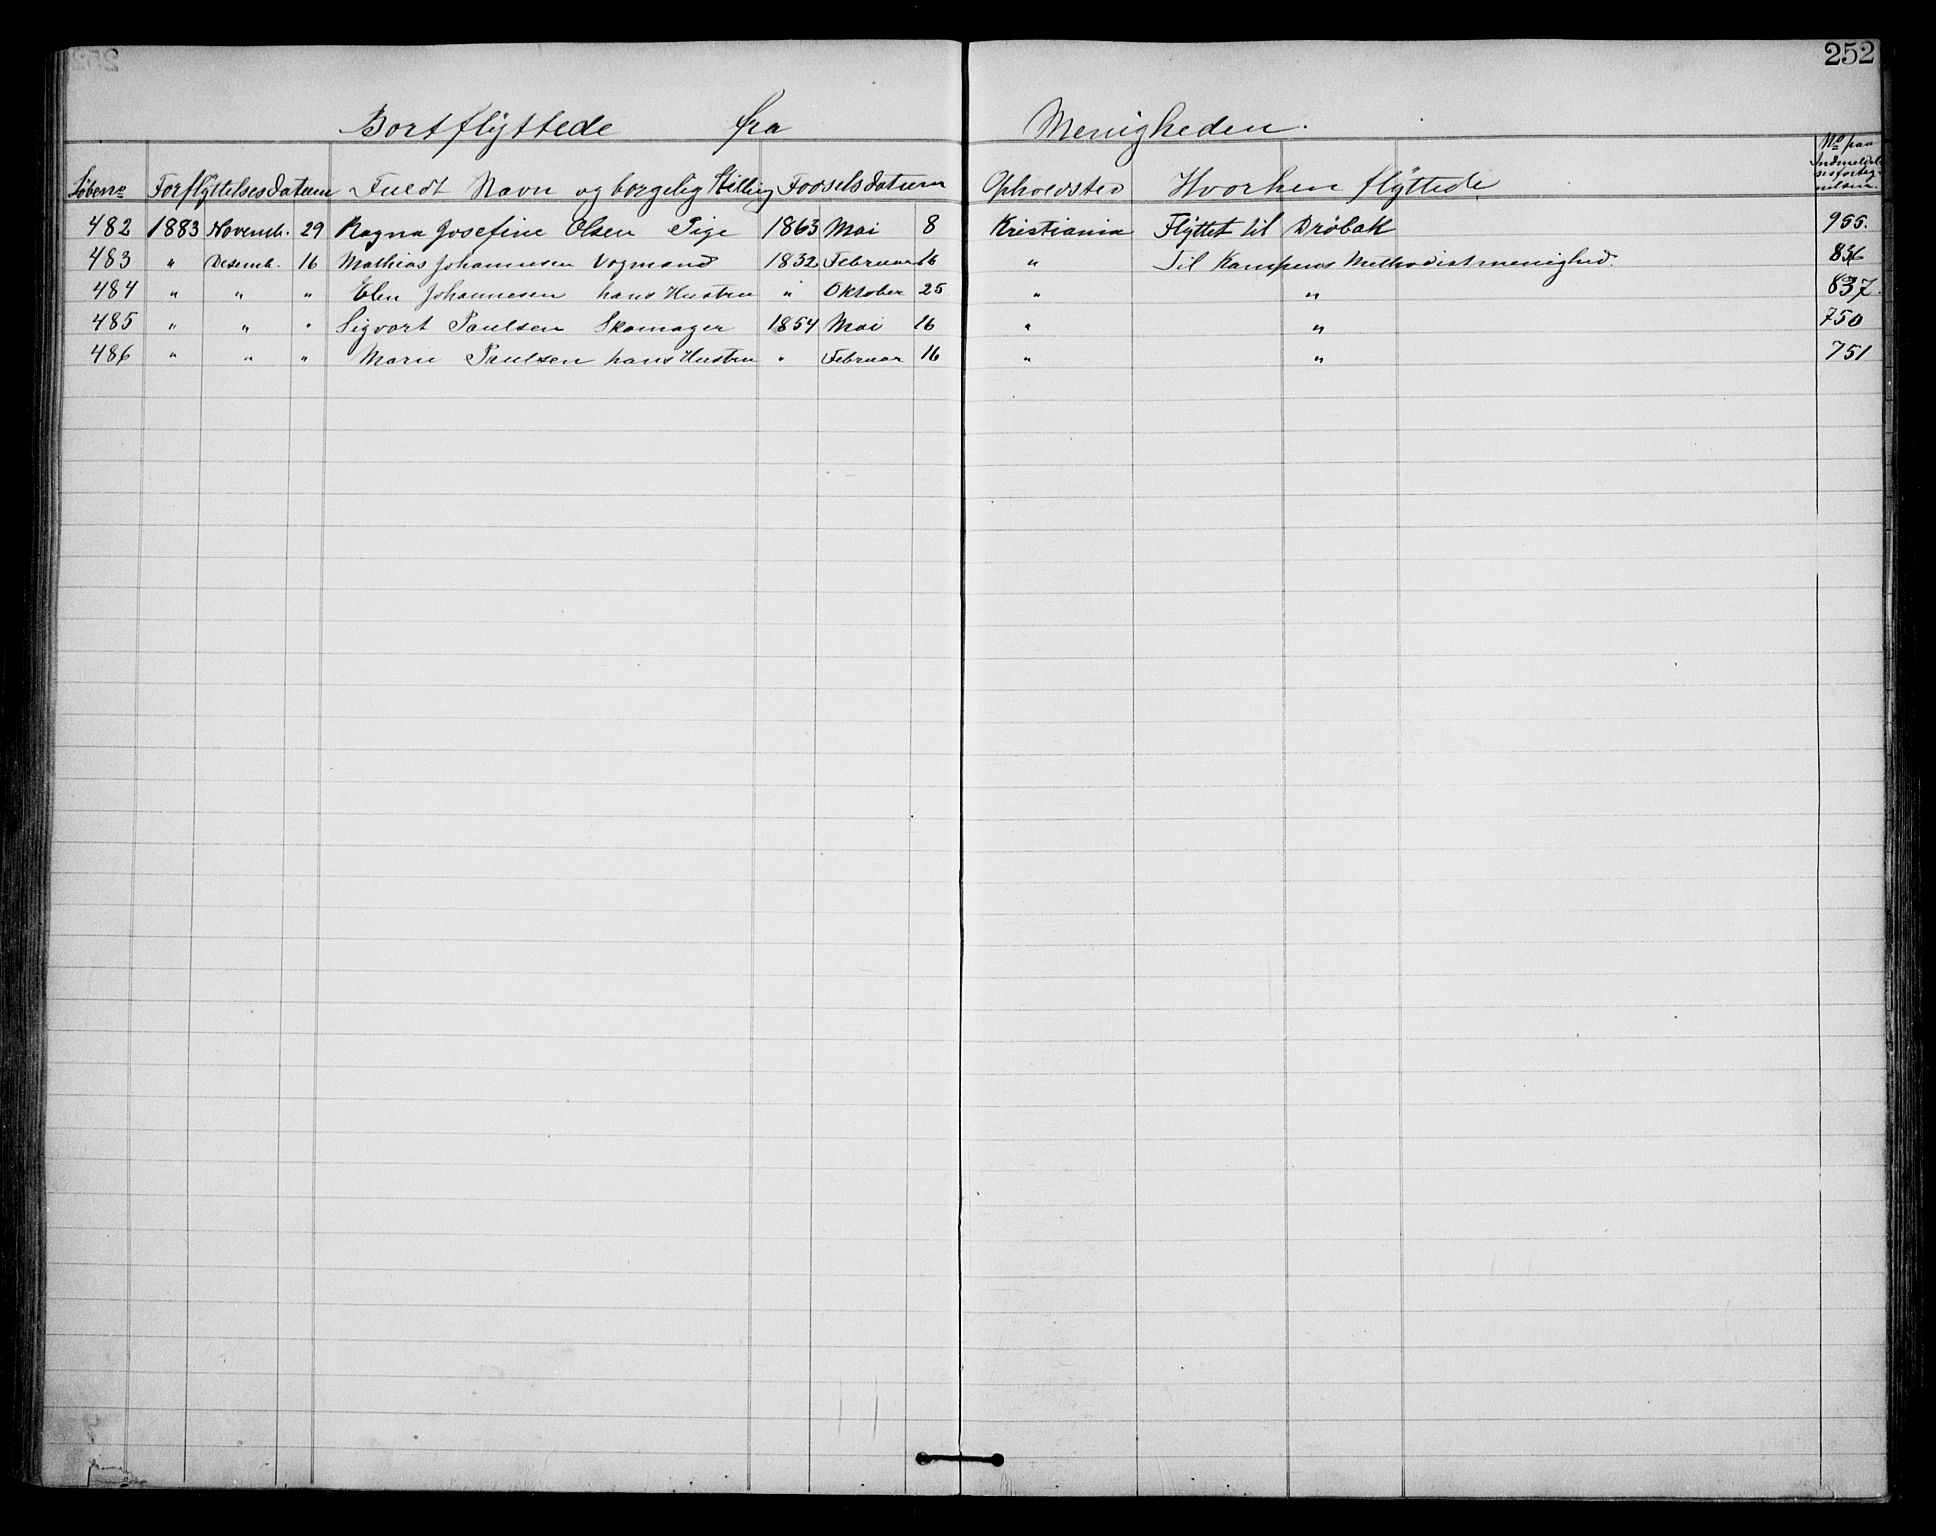 252
Bortflÿttede fra Menigheden.
Löbeno Forflÿttelsesdatum Fuldt Navn og borgelig Stilling Fødselsdatum Opholdsted Hvorhen flÿttede No paa Indmeldelsesfortegnelsen.
482 1883 Novemb. 29 Ragna Josefine Olsen Pige 1863 Mai 8 Kristiania Flÿttet til Dröbak 955.
483 " Desemb. 16 Mathias Johannesen Vogmand 1832 Februar 16 " Til Kampens Methodistmenighed. 836
484 " " " Elen Johannesen hans Hustru " Oktober 25 " " 837.
485 " " " Sigvart Paulsen Skomager 1854 Mai 16 " " 750
486 " " " Marie Paulsen hans Hustru " Februar 16 " " 751